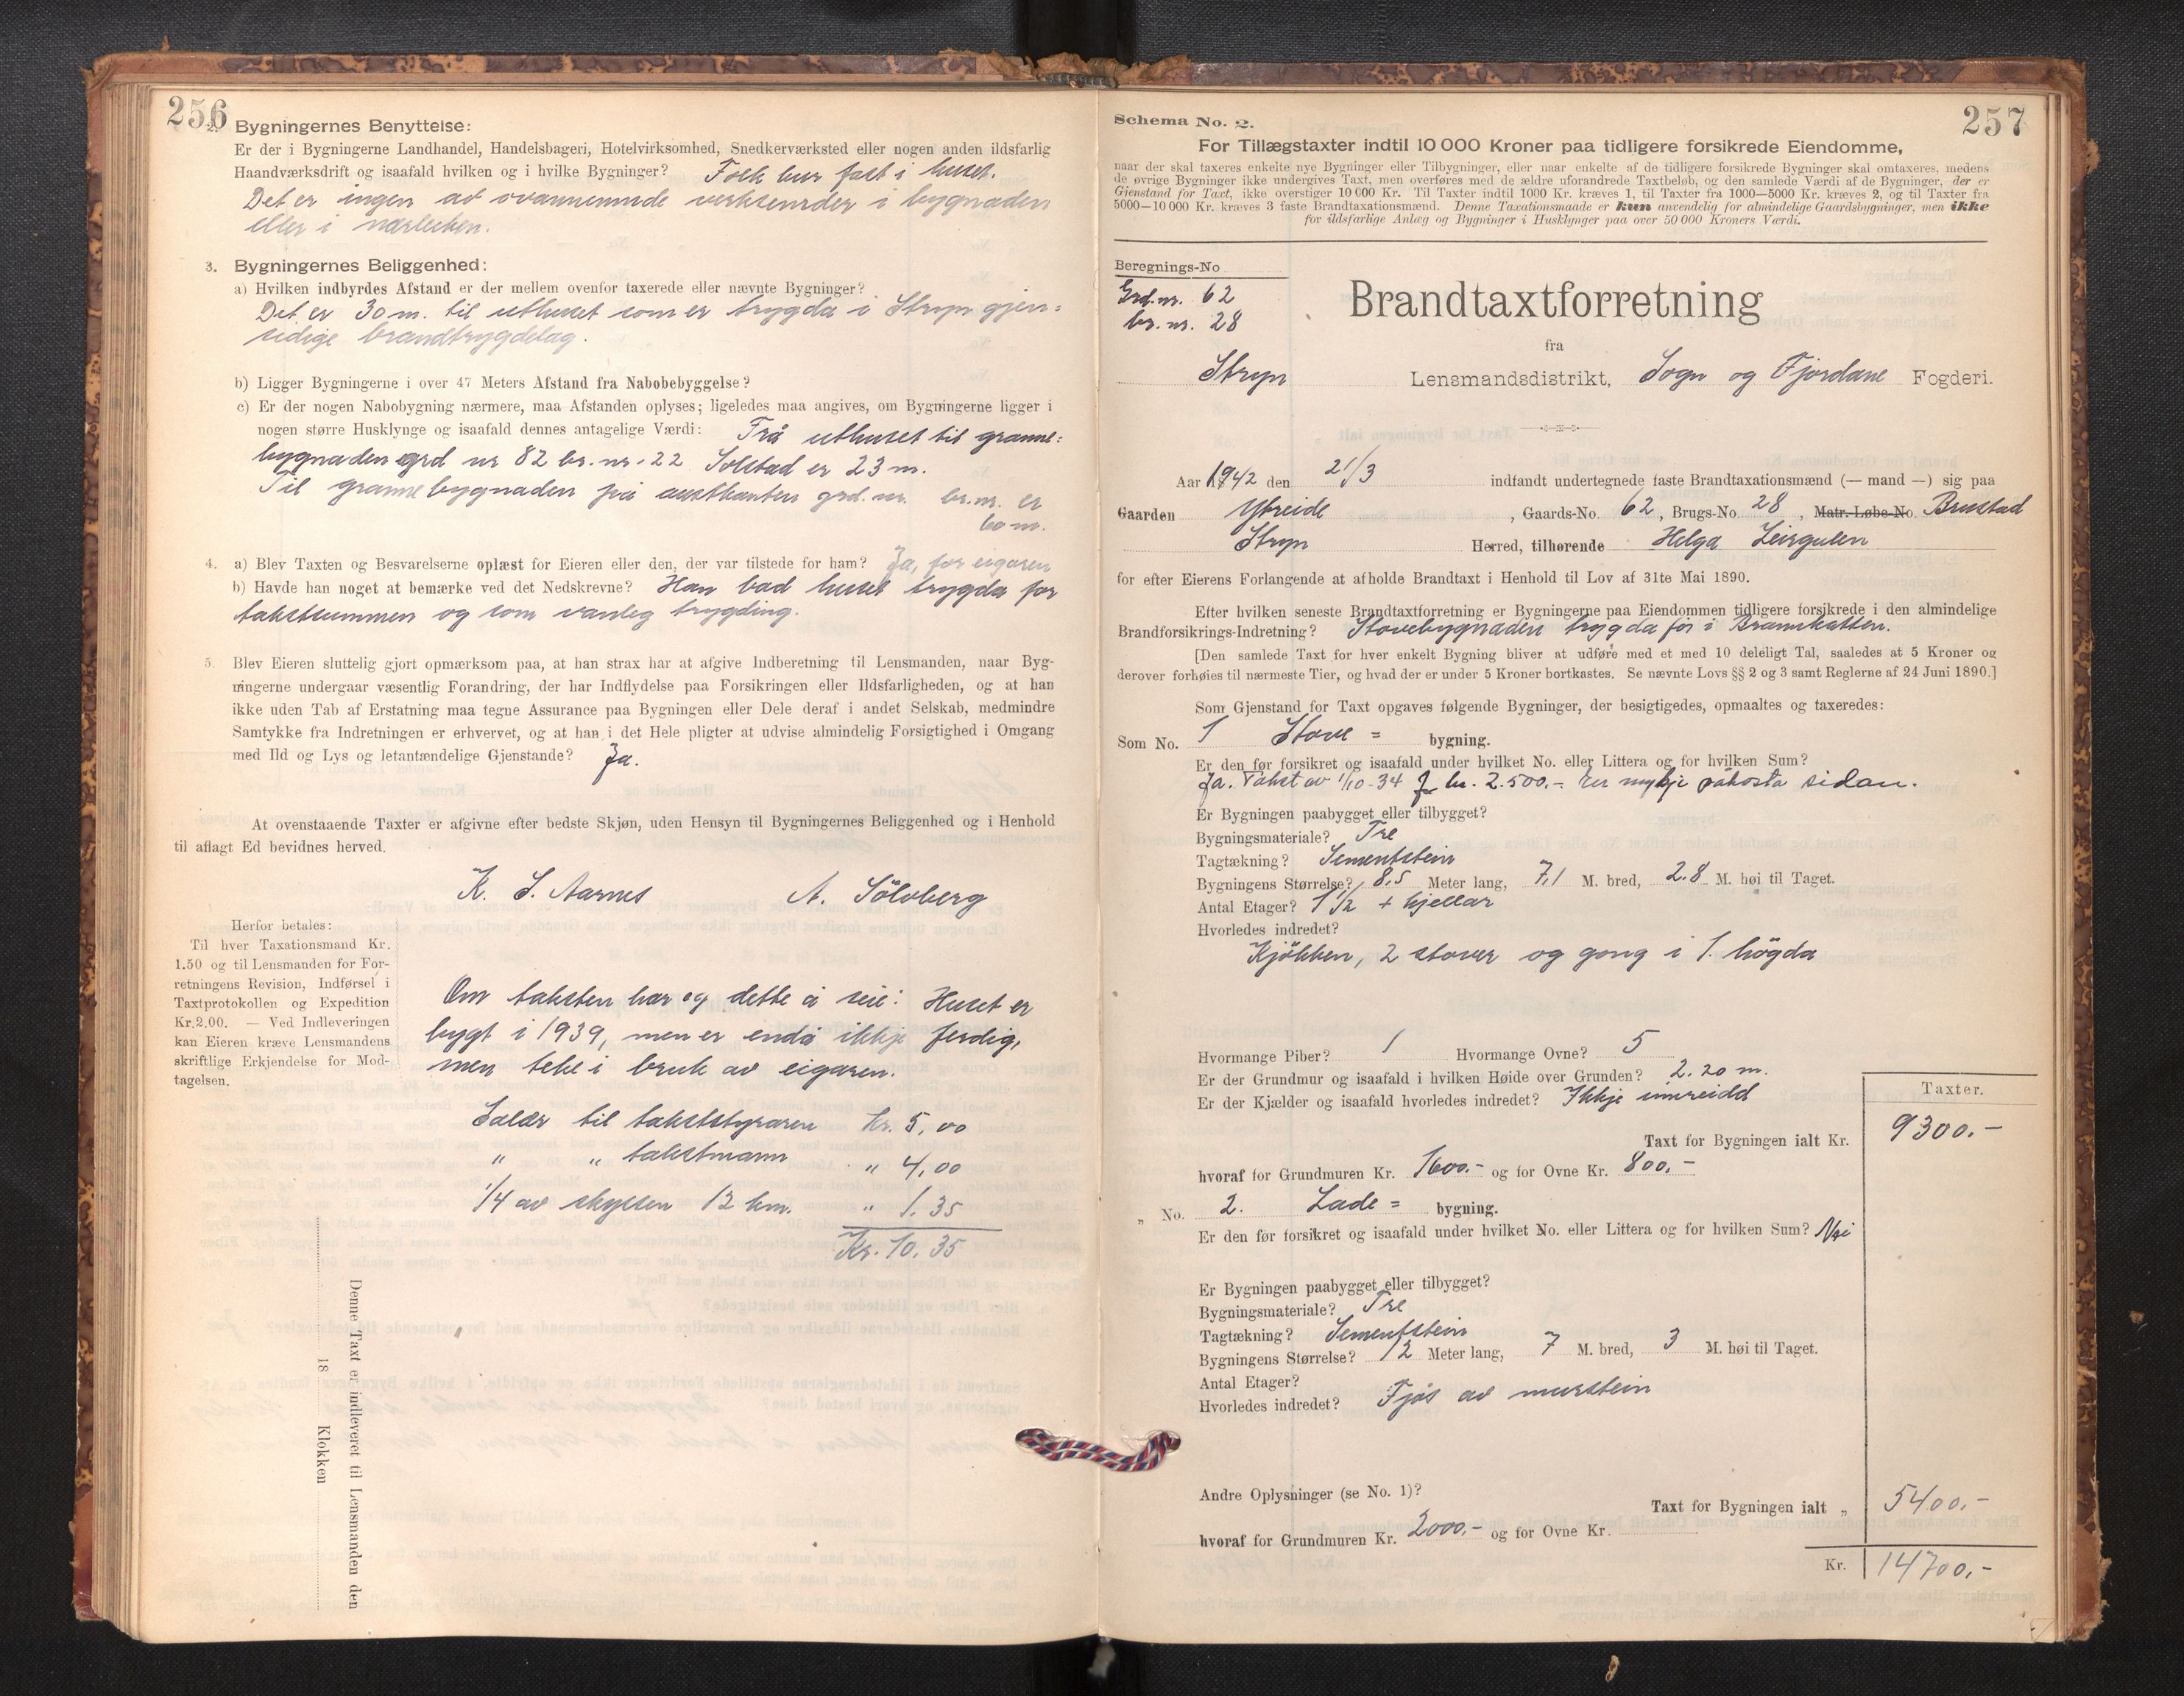 256
2. Bygningernes Benyttelse:
Er der i Bygningerne Landhandel, Handelsbageri, Hotelvirksomhed, Snedkerværksted eller nogen anden ildsfarlig
Haandværksdrift og isaafald hvilken og i hvilke Bygninger? Folk bur fast i huset.
Det er ingen av ovannemnde verksemder i bygnaden
eller i nærleiken.
3. Bygningernes Beliggenhed:
a) Hvilken indbyrdes Afstand er der mellem ovenfor taxerede eller nævnte Bygninger?
Det er 30 m. til uthuset som er trygda i Stryn gjen=
sidige brandtrygdelag.
b) Ligger Bygningerne i over 47 Meters Afstand fra Nabobebyggelse?
c) Er der nogen Nabobygning nærmere, maa Afstanden oplyses; ligeledes maa angives, om Bygningerne ligger i
nogen større Husklynge og isaafald dennes antagelige Værdi: Frå uthuset til granne=
bygnaden grd nr 82 br. nr. 22 Solstad er 23 m.
Til grannebygnaden på austkanten grd. nr. br. nr. er
60 m.
4. a) Blev Taxten og Besvarelserne oplæst for Eieren eller den, der var tilstede for ham? Ja, for eigaren
b) Havde han noget at bemærke ved det Nedskrevne? Han bad huset trygda for
takstsummen og som vanleg trygding.
5. Blev Eieren sluttelig gjort opmærksom paa, at han strax har at afgive Indberetning til Lensmanden, naar Byg-
ningerne undergaar væsentlig Forandring, der har Indflydelse paa Forsikringen eller Ildsfarligheden, og at han
ikke uden Tab af Erstatning maa tegne Assurance paa Bygningen eller Dele deraf i andet Selskab, medmindre
Samtykke fra Indretningen er erhvervet, og at han i det Hele pligter at udvise almindelig Forsigtighed i Omgang
med Ild og Lys og letantændelige Gjenstande? Ja.
At ovenstaaende Taxter er afgivne efter bedste Skjøn, uden Hensyn til Bygningernes Beliggenhed og i Henhold
til aflagt Ed bevidnes herved.
K. S. Aarnes A. Sölvberg
Herfor betales:
Til hver Taxationsmand Kr.
1.50 og til Lensmanden for For-
retningens Revision, Indførsel i
Taxtprotokollen og Expedition
Kr.2.00. — Ved Indleveringen
kan Eieren kræve Lensmandens
skriftlige Erkjendelse for Mod-
tagelsen.
Om taksten har og dette å seie: Huset er
bygt i 1939, men er endå ikkje ferdig,
men teke i bruk av eigaren.
Salær til takststyraren Kr. 5,00
" " takstmann " 4,00
1/4 av skyssen 12 km. " 1.35
Kr. 10.35
Denne Taxt er indleveret til Lensmanden den
18 Klokken
257
Schema No. 2.
For Tillægstaxter indtil 10 000 Kroner paa tidligere forsikrede Eiendomme,
naar der skal taxeres enkelte nye Bygninger eller Tilbygninger, eller naar enkelte af de tidligere forsikrede Bygninger skal omtaxeres, medens
de øvrige Bygninger ikke undergives Taxt, men overføres med de ældre uforandrede Taxtbeløb, og den samlede Værdi af de Bygninger, der er
Gienstand for Taxt, ikke overstiger 10 000 Kr. Til Taxter indtil 1000 Kr. kræves 1, til Taxter fra 1000—5000 Kr. kræves 2, og til Taxter fra
5000—10 000 Kr. kræves 3 faste Brandtaxationsmænd. Denne Taxationsmaade er kun anvendelig for almindelige Gaardsbygninger, men ikke
for ildsfarlige Anlæg og Bygninger i Husklynger paa over 50 000 Kroners Værdi.
Beregnings-No
Grd. nr. 62
br. nr. 28
Brandtaxtforretning
fra
Stryn Lensmandsdistrikt, Sogn og Fjordane Fogderi.
Aar 1942 den 21/3 indfandt undertegnede faste Brandtaxationsmænd (— mand —) sig paa
Gaarden Ytreide, Gaards-No. 62, Brugs-No. 28, Matr.-Løbe-No. Brustad
Stryn Herred, tilhørende Helga Leirgulen
for efter Eierens Forlangende at afholde Brandtaxt i Henhold til Lov af 31te Mai 1890.
Efter hvilken seneste Brandtaxtforretning er Bygningerne paa Eiendommen tidligere forsikrede i den almindelige
Brandforsikrings-Indretning? Stovebygnaden trygda før i Brannkassen.
[Den samlede Taxt for hver enkelt Bygning bliver at udføre med et med 10 deleligt Tal, saaledes at 5 Kroner og
derover forhøies til nærmeste Tier, og hvad der er under 5 Kroner bortkastes. Se nævnte Lovs §§ 2 og 3 samt Reglerne af 24 Juni 1890.]
Som Gjenstand for Taxt opgaves følgende Bygninger, der besigtigedes, opmaaltes og taxeredes:
Som No. 1 Stove = bygning.
Er den før forsikret og isaafald under hvilket No. eller Littera og for hvilken Sum?
Ja. Takst av 1/10-34 kr. 2.500.- Er mykje påkosta sidan.
Er Bygningen paabygget eller tilbygget?
Bygningsmateriale? Tre
Tagtækning? Sementstein
Bygningens Størrelse? 8,5 Meter lang, 7,1 M. bred, 2.8 M. høi til Taget.
Antal Etager? 1 1/2 + kjellar
Hvorledes indredet?
Kjökken, 2 stover og gong i 1. högda
Hvormange Piber? 1 Hvormange Ovne? 5
Er der Grundmur og isaafald i hvilken Høide over Grunden? 2.20 m.
Er der Kjælder og isaafald hvorledes indredet? Ikkje innreidd
Taxter.
Taxt for Bygningen ialt Kr. 9300.-
hvoraf for Grundmuren Kr. 1600.- og for Ovne Kr. 800.-
" No. 2. Lade = bygning.
Er den før forsikret og isaafald under hvilket No. eller Littera og for hvilken Sum? Nei
Er Bygningen paabygget eller tilbygget?
Bygningsmateriale? Tre
Tagtækning? Sementstein
Bygningens Størrelse? 12 Meter lang, 7 M. bred, 3 M. høi til Taget.
Antal Etager?
Hvorledes indredet? Fjøs av murstein
Andre Oplysninger (se No. 1)?
Taxt for Bygningen ialt " 5400.-
hvoraf for Grundmuren Kr. 2000.- og for Ovne Kr.
Kr. 14700.-